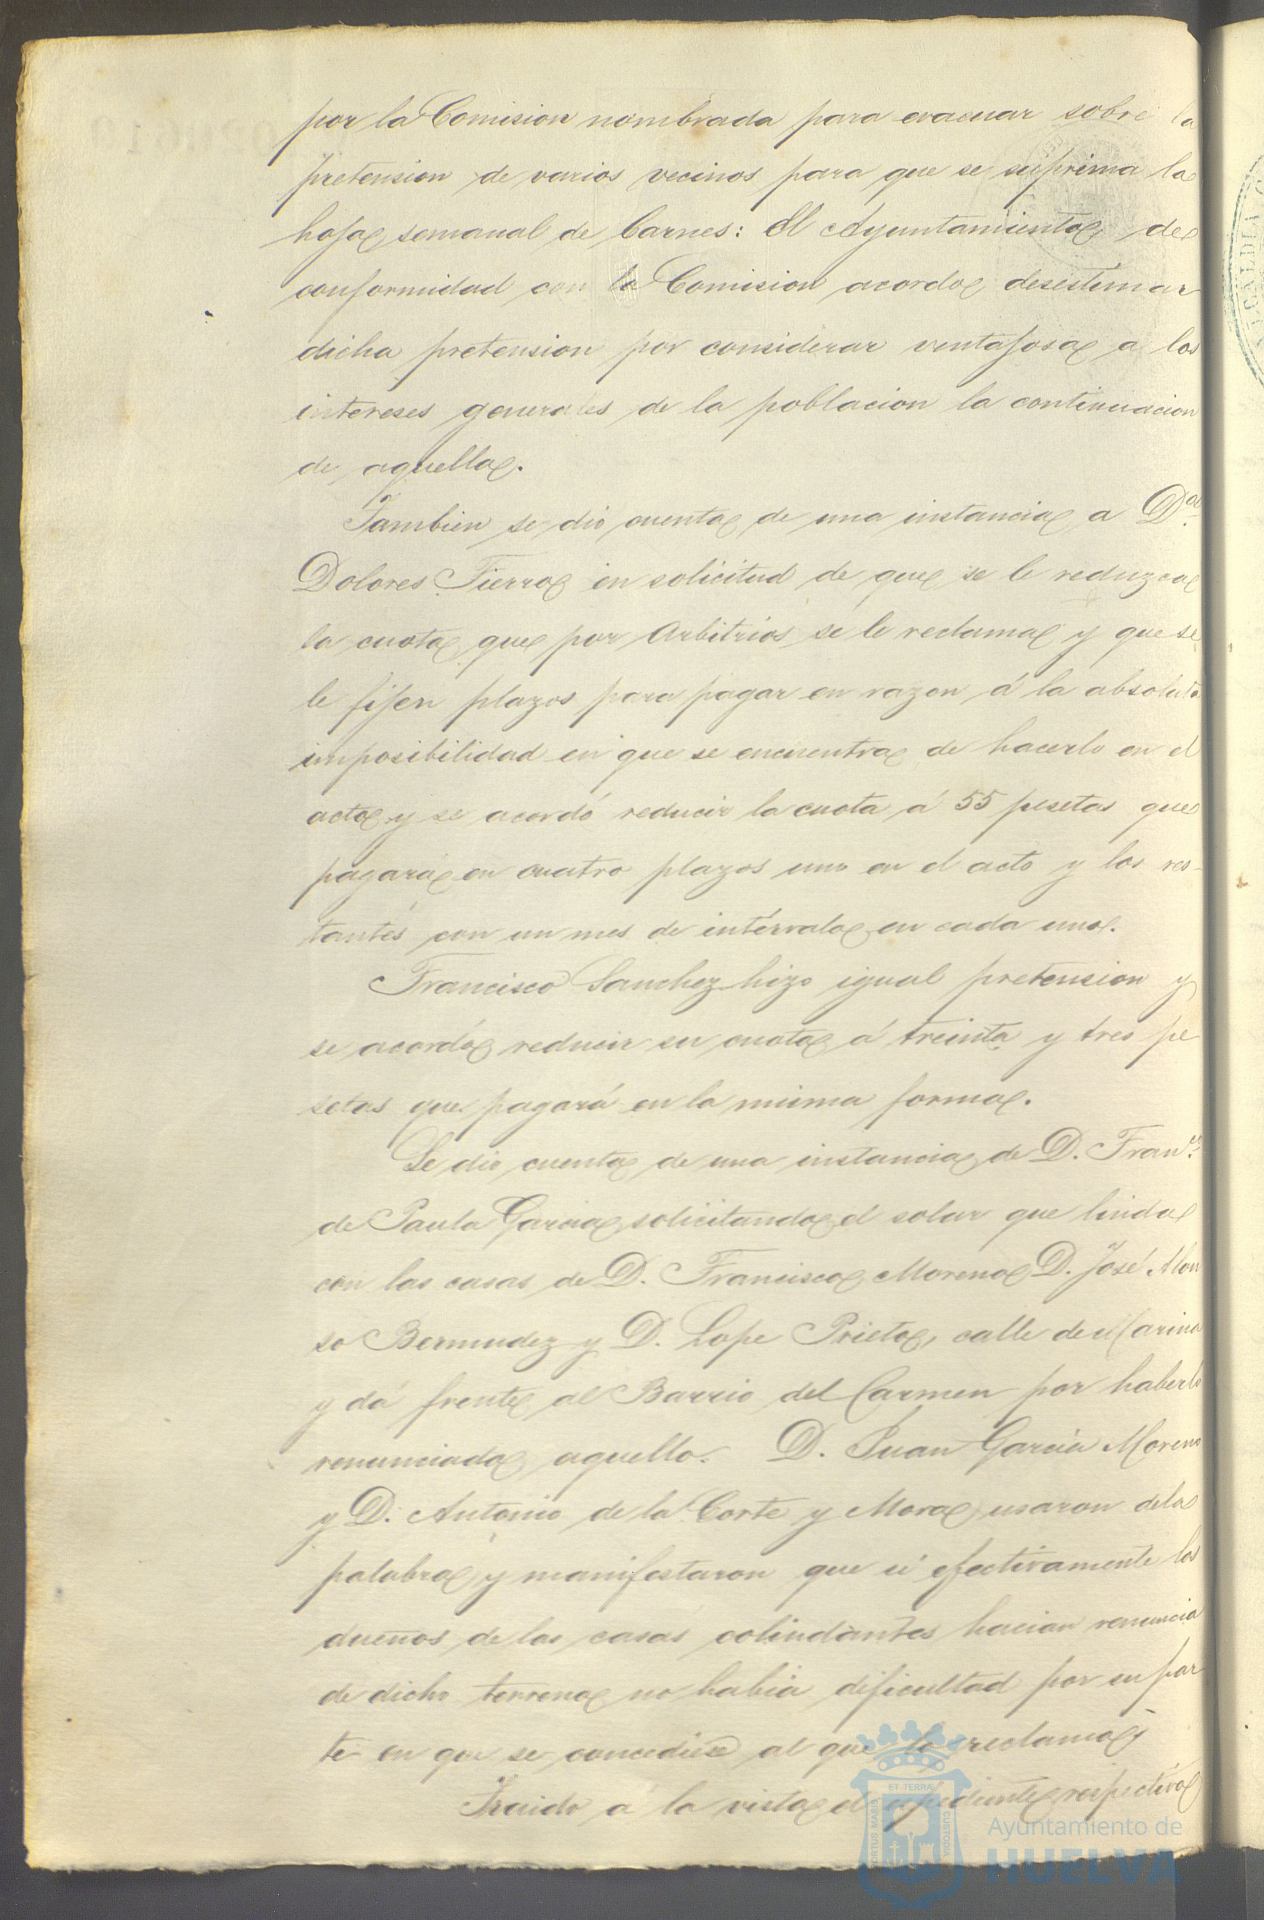 por la Comision nombrada para evacuar sobre la
pretension de varios vecinos para que se suprima la
hoja semanal de Carnes: El Ayuntamiento de
conformidad con la Comision acordo desestimar
dicha pretension por considerar ventajosa a los
intereses generales de la poblacion la continuacion
de aquella.
Tambien se dió cuenta de una instancia a D.ª
Dolores Tierra en solicitud de que se le reduzca
la cuota que por Arbitrios se le reclama y que se
le fijen plazos para pagar en razon á la absoluta
imposibilidad en que se encuentra de hacerlo en el
acto y se acordó reducir la cuota á 55 pesetas que
pagará en cuatro plazos uno en el acto y los res-
tantes con un mes de intérvalo en cada uno.
Francisco Sanchez hizo igual pretension y
se acordó reducir su cuota á treinta y tres pe
setas que pagará en la misma forma.
Se dió cuenta de una instancia de D. Fran.co
de Paula Garcia solicitando el solar que linda
con las casas de D. Francisco Moreno D. José Alon
so Bermudez y D. Lope Prieto, calle de Marina
y dá frente al Barrio del Carmen por haberlo
renunciado aquello. D. Juan García Moreno
y D. Antonio de la Corte y Mora usaron dela
palabra y manifestaron que si efectivamente los
dueños de las casas colindantes hacian renuncia
de dicho terreno no habia dificultad por su par
te en que se concediese al que lo reclama
Traido á la vista el espediente respectivo
ALCALDIA C
PORTUS MARIS
ET TERRÆ
CUSTODIA
Ayuntamiento de
HUELVA